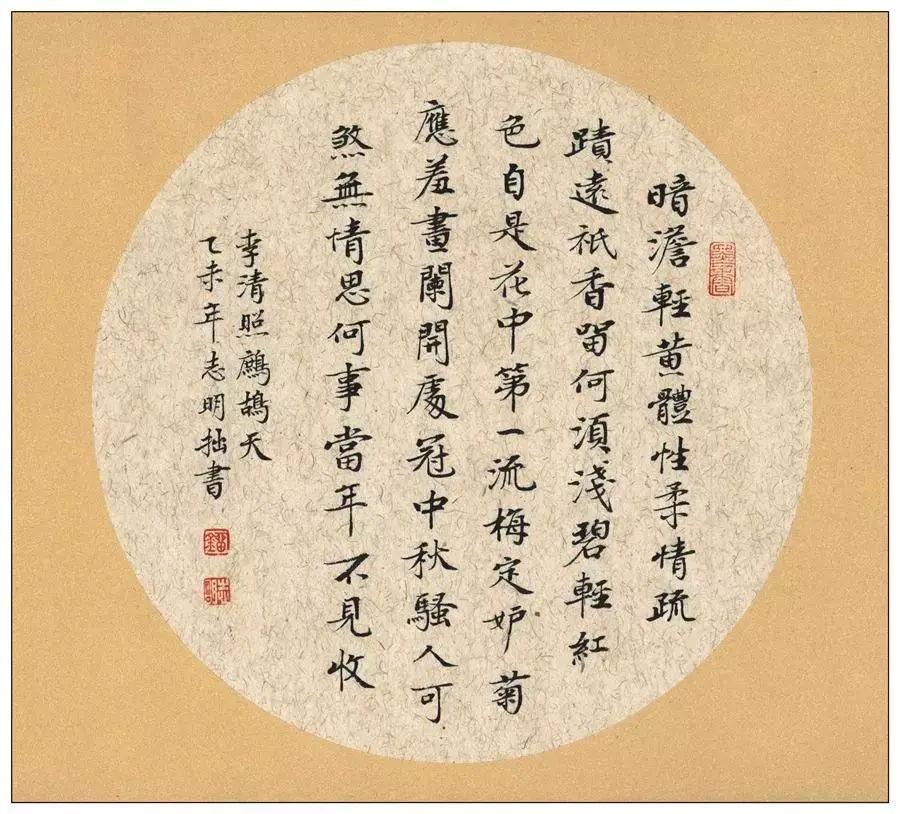 暗澹輕黄體性柔情疏
蹟遠祇香留何湏淺碧輕紅
色自是花中第一流梅定妒菊
應羞畫闌開處冠中秋騷人可
煞無情思何事當年不見收
李清照鷓鴣天
乙未年志明拙書